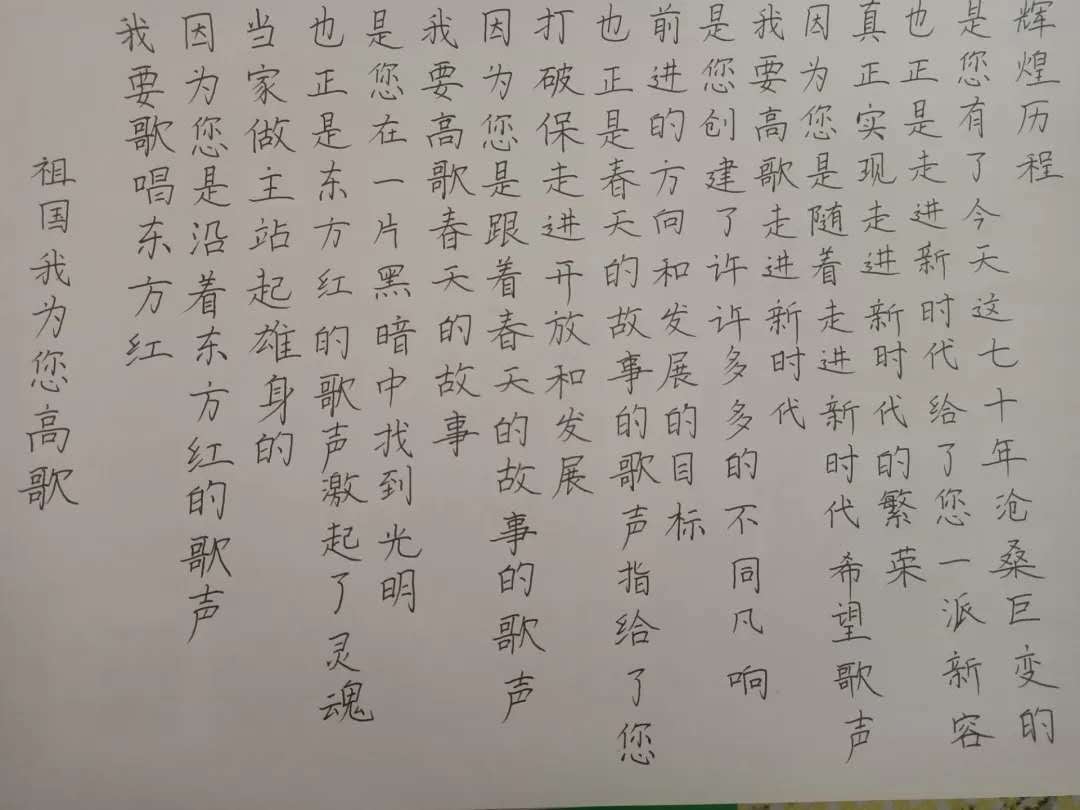 祖国我为您高歌
我要歌唱东方红
因为您是沿着东方红的歌声
当家做主站起雄身的
也正是东方红的歌声激起了灵魂
是您在一片黑暗中找到光明
我要高歌春天的故事
因为您是跟着春天的故事的歌声
打破保走进开放和发展
也正是春天的故事的歌声指给了您
前进的方向和发展的目标
是您创建了许许多多的不同凡响
我要高歌走进新时代
因为您是随着走进新时代希望歌声
真正实现走进新时代的繁荣
也正是走进新时代给了您一派新容
是您有了今天这七十年沧桑巨变的
辉煌历程